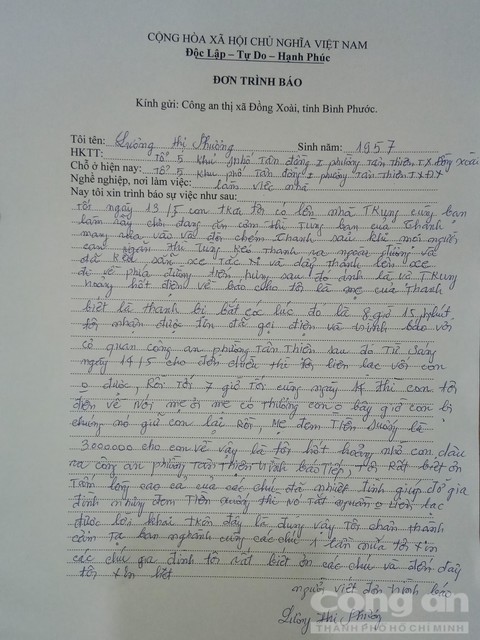 CỘNG HÒA XÃ HỘI CHỦ NGHĨA VIỆT NAM
Độc Lập – Tự Do – Hạnh Phúc
ĐƠN TRÌNH BÁO
Kính gửi: Công an thị xã Đồng Xoài, tỉnh Bình Phước.
Tôi tên: Lương Thị Phường Sinh năm: 1957
HKTT: Tổ 5 khu phố Tân đồng I phường Tân Thiện TX đồng xoài
Chỗ ở hiện nay: Tổ 5 khu phố Tân đồng I phường Tân Thiện TX ĐX
Nghề nghiệp, nơi làm việc: làm việc nhà
Nay tôi xin trình báo sự việc như sau:
Tối ngày 13/5 con trai tôi có lên nhà Trung cùng bạn
làm này chơi đang ăn cơm thì Tung bạn của Thành
mang dao vào với đòi chém Thanh sau khi mọi người
can ngăn thì Tung kéo thanh ra ngoài đường và
đã kêu sẵn xe Tắc xi và đẩy thành lên xe
đi về phía đường điện hùng sau đó anh là và Trung
hoảng hốt điện về báo cho tôi là mẹ của Thanh
biết là thanh bị bắt cóc lúc đó là 8 giờ 15 phút
tôi nhận được tin đã gọi điện và trình báo với
cơ quan công an phường Tân Thiện sau đó Từ sáng
ngày 14/5 cho đến chiều thì tôi liên lạc với con
o được, Rồi Tới 7 giờ Tối cùng ngày 14 thì con tôi
điện về nói mẹ ơi mẹ có thương con o bây giờ con bị
chúng nó giữ con lại Rồi, mẹ đem Tiền xuống là
3000000 cho con về vậy là tôi hốt hoảng nhờ con dâu
ra công an phường Tân Thiện trình báo Tiếp, Tôi Rất biết ơn
Tấm lòng cao cả của các chú đã nhiệt tình giúp đỡ gia
đình nhưng đem Tiền xuống thì nó Tắt nguồn o liên lạc
được lời khai trên đây là đúng vậy Tôi chân thành
cảm Tạ ban nghành cùng các chú 1 lần nữa tôi xin
các chú gia đình tôi rất biết ơn các chú và đến đây
tôi xin hết
người viết đơn trình báo
Lương Thị Phường
công an
THÀNH PHỐ HỒ CHÍ MINH